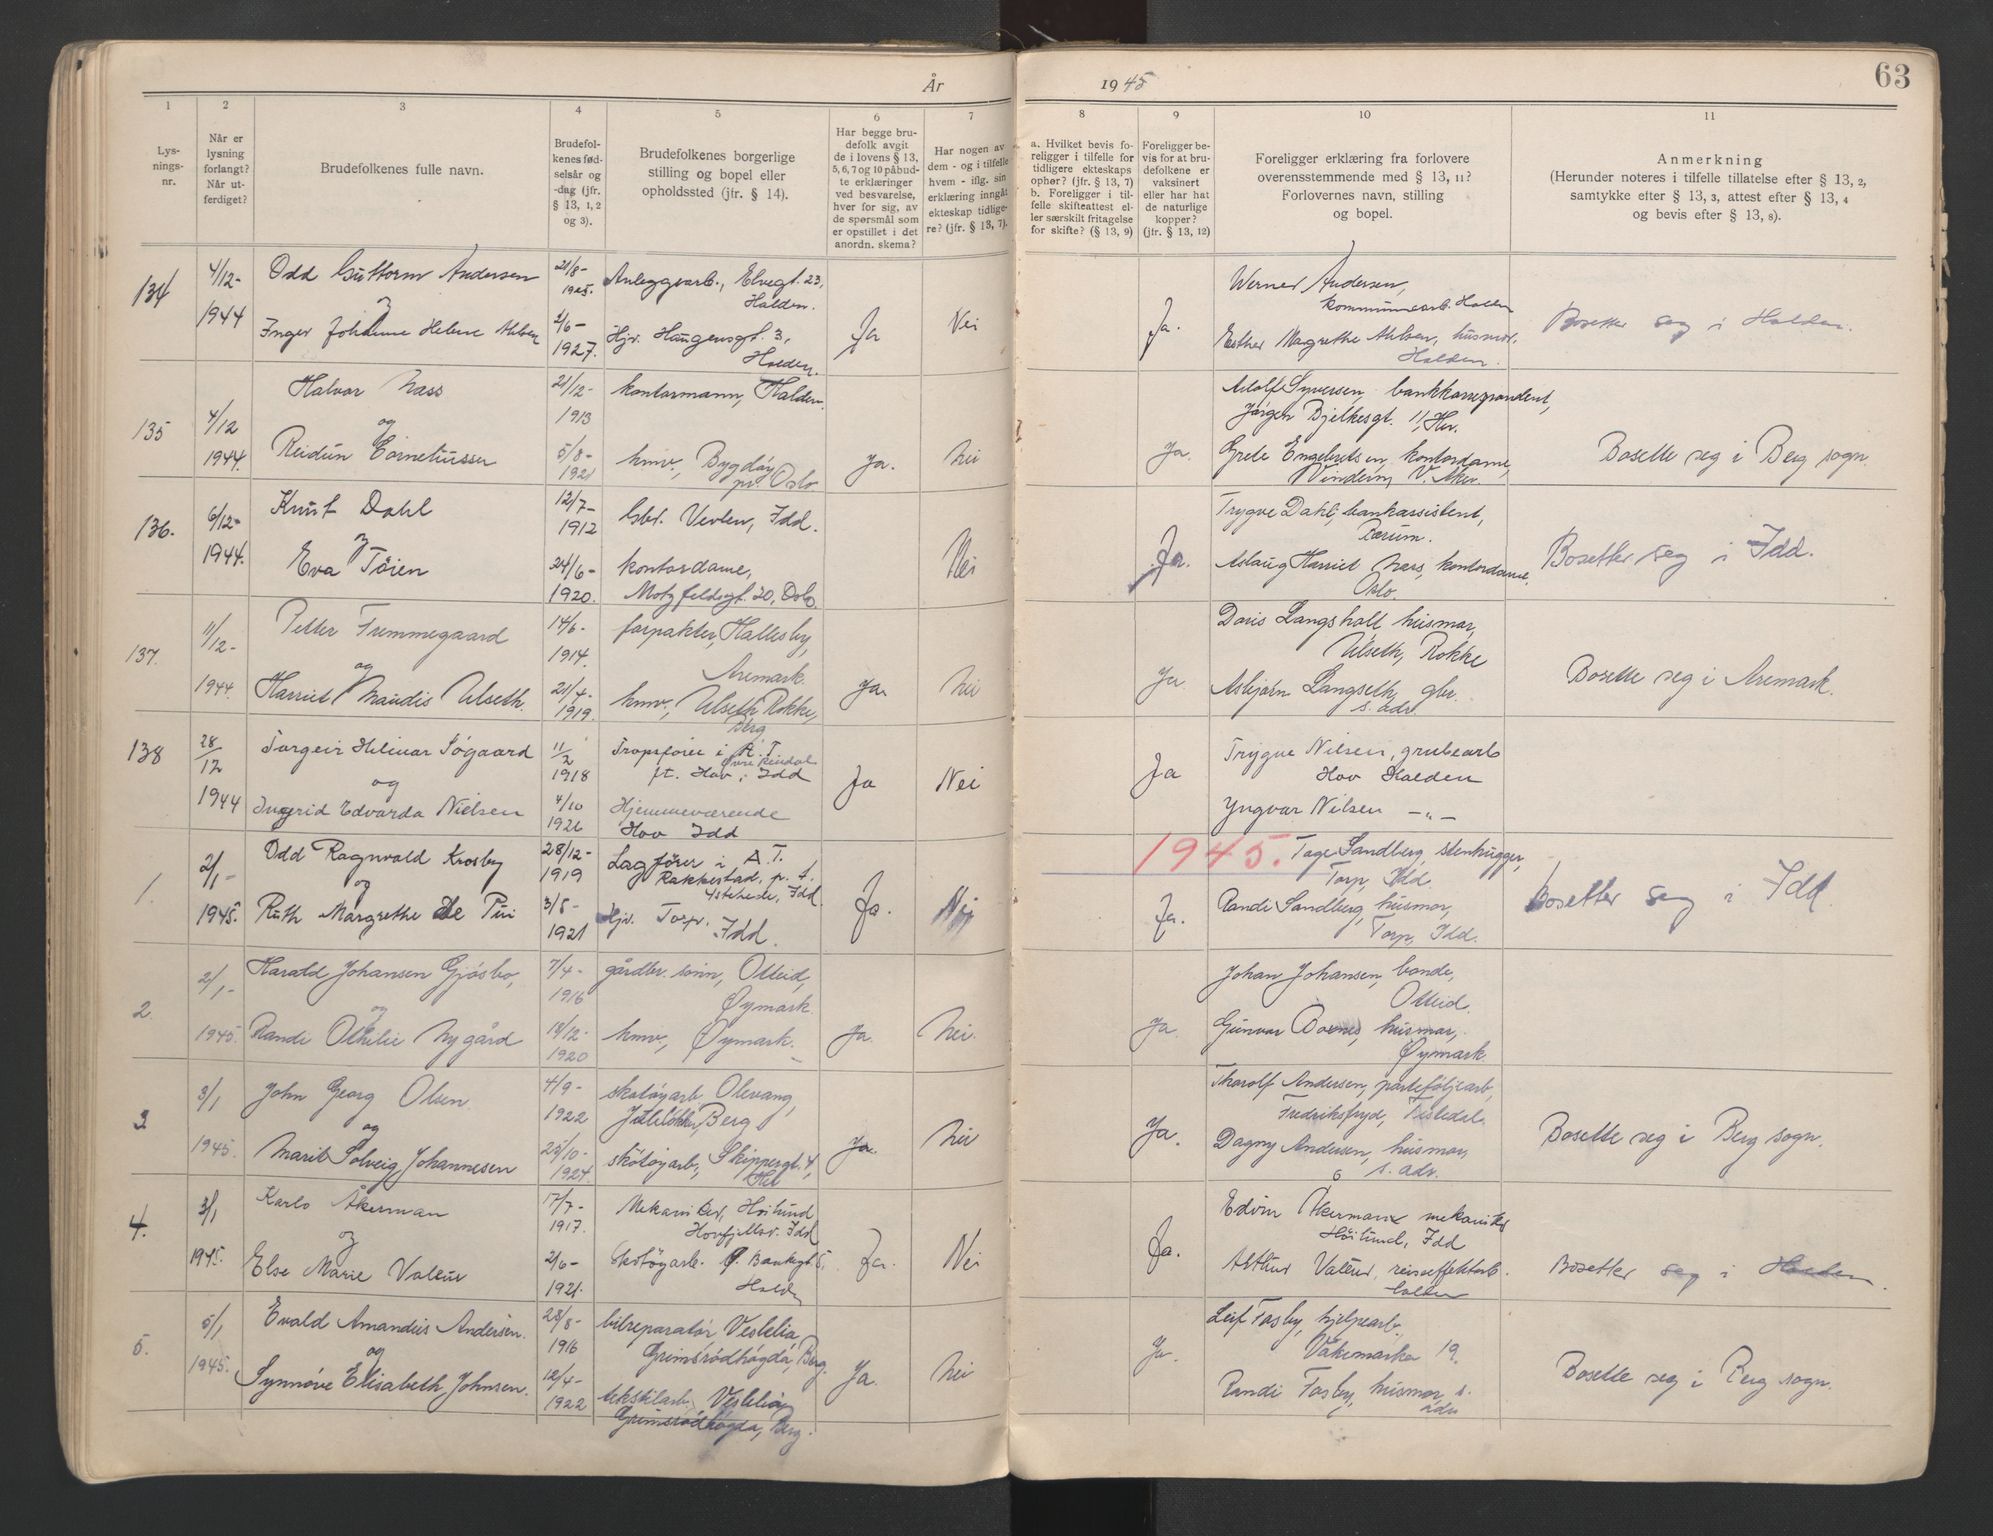 År 1945
63
1
2
3
4
5
6
7
8
9
10
11
Lys-
nings-
nr.
Når er
lysning
forlangt?
Når ut-
ferdiget?
Brudefolkenes fulle navn.
Brudefol-
kenes fød-
selsår og
-dag (jfr.
§ 13, 1, 2
og 3).
Brudefolkenes borgerlige
stilling og bopel eller
opholdssted (jfr. § 14).
Har begge bru-
defolk avgit
de i lovens § 13,
5, 6, 7 og 10 påbud-
te erklæringer
ved besvarelse,
hver for sig, av
de spørsmål som
er opstillet i det
anordn. skema?
Har nogen av
dem - og i tilfelle
hvem - iflg. sin
erklæring inngått
ekteskap tidlige-
re? (jfr. § 13, 7).
a. Hvilket bevis fo-
religger i tilfelle for
tidligere ekteskaps
ophør? (jfr. § 13, 7)
b. Foreligger i til-
felle skifteattest el-
ler særskilt fritagelse
for skifte? (§ 13, 9)
Foreligger be-
vis for at bru-
defolkene er
vaksinert
eller har hat
de naturlige
kopper?
(jfr. § 13, 12)
Foreligger erklæring fra forlovere
overensstemmende med § 13, 11?
Forlovernes navn, stilling
og bopel.
Anmerkning
(Herunder noteres i tilfelle tillatelse efter § 13, 2,
samtykke efter § 13, 3, attest efter § 13, 4
og bevis efter § 13, 8).
134
4/12-
1944
Odd Guttorm Andersen
og
Inger Johanne Helene Ahlsen
21/8-
1925.
2/6-
1927.
Anleggsarb., Elvegt. 23,
Halden.
Hjv. Haugensgt. 3,
Halden.
Ja
Nei
Ja.
Werner Andersen,
kommunearb. Halden
Esther Margrethe Ahlsen, husmor.
Halden.
Bosetter seg i Halden.
135
4/12
1944.
Halvor Næss
og
Reidun Corneliussen
21/12-
1913
5/8-
1921
kontormann, Halden.
hmv., Bygdøy
pr. Oslo
Ja.
Nei
Ja.
Adolf Syversen, bankkorrespondent,
Jørgen Bjelkesgt. 11, Her.
Grete Engebretsen, kontordame,
Vinderen, V. Aker.
Bosette seg i Berg sogn.
136.
6/12-
1944.
Knut Dahl
og
Eva Töien
12/7-
1912
24/6-
1920.
Gbr. Vevlen, Idd.
kontordame,
Motzfeldsgt. 20, Oslo.
Nei
Ja.
Trygve Dahl, bankassistent,
Bærum.
Aslaug Harriet Næss, kontordame.
Oslo.
Bosetter seg i Idd.
137.
11/12-
1944.
Petter Fremmegaard
og
Harriet Maudis Ulseth.
14/6-
1914.
21/4-
1919.
forpakter, Hallesby,
Aremark.
hmv., Ulseth, Rokke,
Berg
Ja.
Nei
Ja.
Doris Langsholt husmor,
Ulseth, Rokke
Asbjørn Langseth, gbr.
s. adr.
Bosette seg i Aremark.
138
28/12
1944
Torgeir Hilmar Søgaard
og
Ingrid Edvarda Nielsen
11/2
1918
4/10
1926
Tropsfører i A.T.
Øvre Rendal
ft. Hov, Idd
Hjemmeværende
Hov Idd
Ja
Nei
Ja
Trygve Nilsen, grubearb
Hov Halden
Yngvar Nilsen -"-
1945.
1.
2/1-
1945.
Odd Ragnvald Krosby
og
Ruth Margrethe De Puri
28/12-
1919
3/8-
1921
Lagfører i A.T.
Rakkestad, p. t.
Isteheide, Idd.
Hjv. Torp.
Idd.
Ja.
Nei
Ja.
Tage Sandberg, stenhugger,
Torp, Idd.
Randi Sandberg, husmor,
Torp, Idd.
Bosetter seg i Idd.
2.
2/1-
1945.
Harald Johansen Gjøsbo,
og
Randi Othilie Nygård
7/4-
1916
18/12-
1920
gårdbr. sønn, Otteid,
Øymark.
hmv., Øymark.
Ja.
Nei.
Ja.
Johan Johansen, bonde,
Otteid.
Gunvor husmor,
Øymark.
3.
3/1
1945.
John Georg Olsen
og
Marit Solveig Johannesen
4/9-
1922
25/10-
1924.
skotøyarb. Olevang,
Berg
skotøyarb., Skippergt. 4,
Ja.
Nei
Ja.
Thorolf Andersen, porteføljearb,
Fredriksfryd, Tistedal.
Dagny Andersen, husmor,
s. adr.
Bosette seg i Berg sogn.
4.
3/1
1945.
Karlo Åkerman
og
Else Marie Valeur
17/7-
1917.
2/6-
1921.
Mekaniker, Höilund
Hovfjellsv. Idd
Skotøyarb. Bankgt 5,
Halden
Ja.
Nei
Ja.
Edvin Åkermann mekaniker
Höilund, Idd
Arthur Valeur, reiseeffektarb.
Halden
Bosetter seg i Halden.
5.
5/1
1945.
Evald Amandus Andersen.
og
Synnöve Elisabeth Johnsen.
28/8-
1916
12/4-
1922
bilreparatör, Veslelia
Grimsrødhøgda, Berg.
tekstilarb., Veslelia,
Grimsrødhøgda, Berg.
Ja.
Nei
Ja.
Leif Tosby, hjelpearb.
Våkemarka 19.
Randi Tosby, husmor, s.
adr
Bosette seg i Berg sogn.